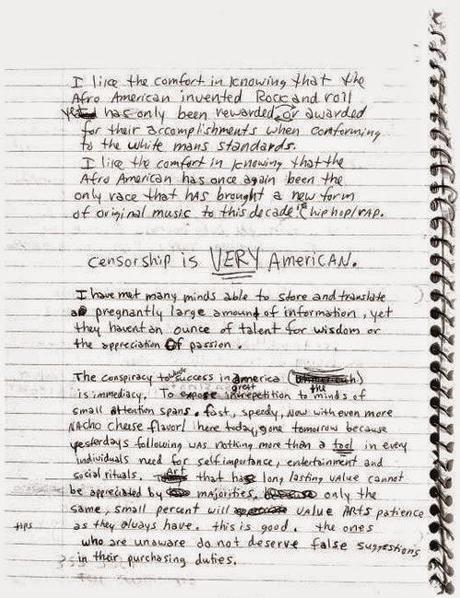 I like the comfort in knowing that the
Afro American invented Rock and roll
yet has only been rewarded or awarded
for their accomplishments when conforming
to the white mans standards.
I like the comfort in knowing that the
Afro American has once again been the
only race that HAS brought a new form
of original music to this decade! (hip hop/RAP.
censorship is VERY American.
I have met many minds able to store and translate
a pregnantly large amount of information, yet
they havent an ounce of talent for wisdom or
the appreciation of passion.
The conspiracy to success in america
is immediacy. To expose in great repetition to the minds of
small attention spans. fast, speedy, Now with even more
NAcho cheese flavor! here today, gone tomorrow because
yesterdays following was nothing more than a tool in every
individuals need for self importance, entertainment and
social rituals. Art that has long lasting value cannot
be appreciated by majorities, only the
same, small percent will value ARts patience
as they always have. this is good. the ones
tips
who are unaware do not deserve false suggestions
in their purchasing duties.